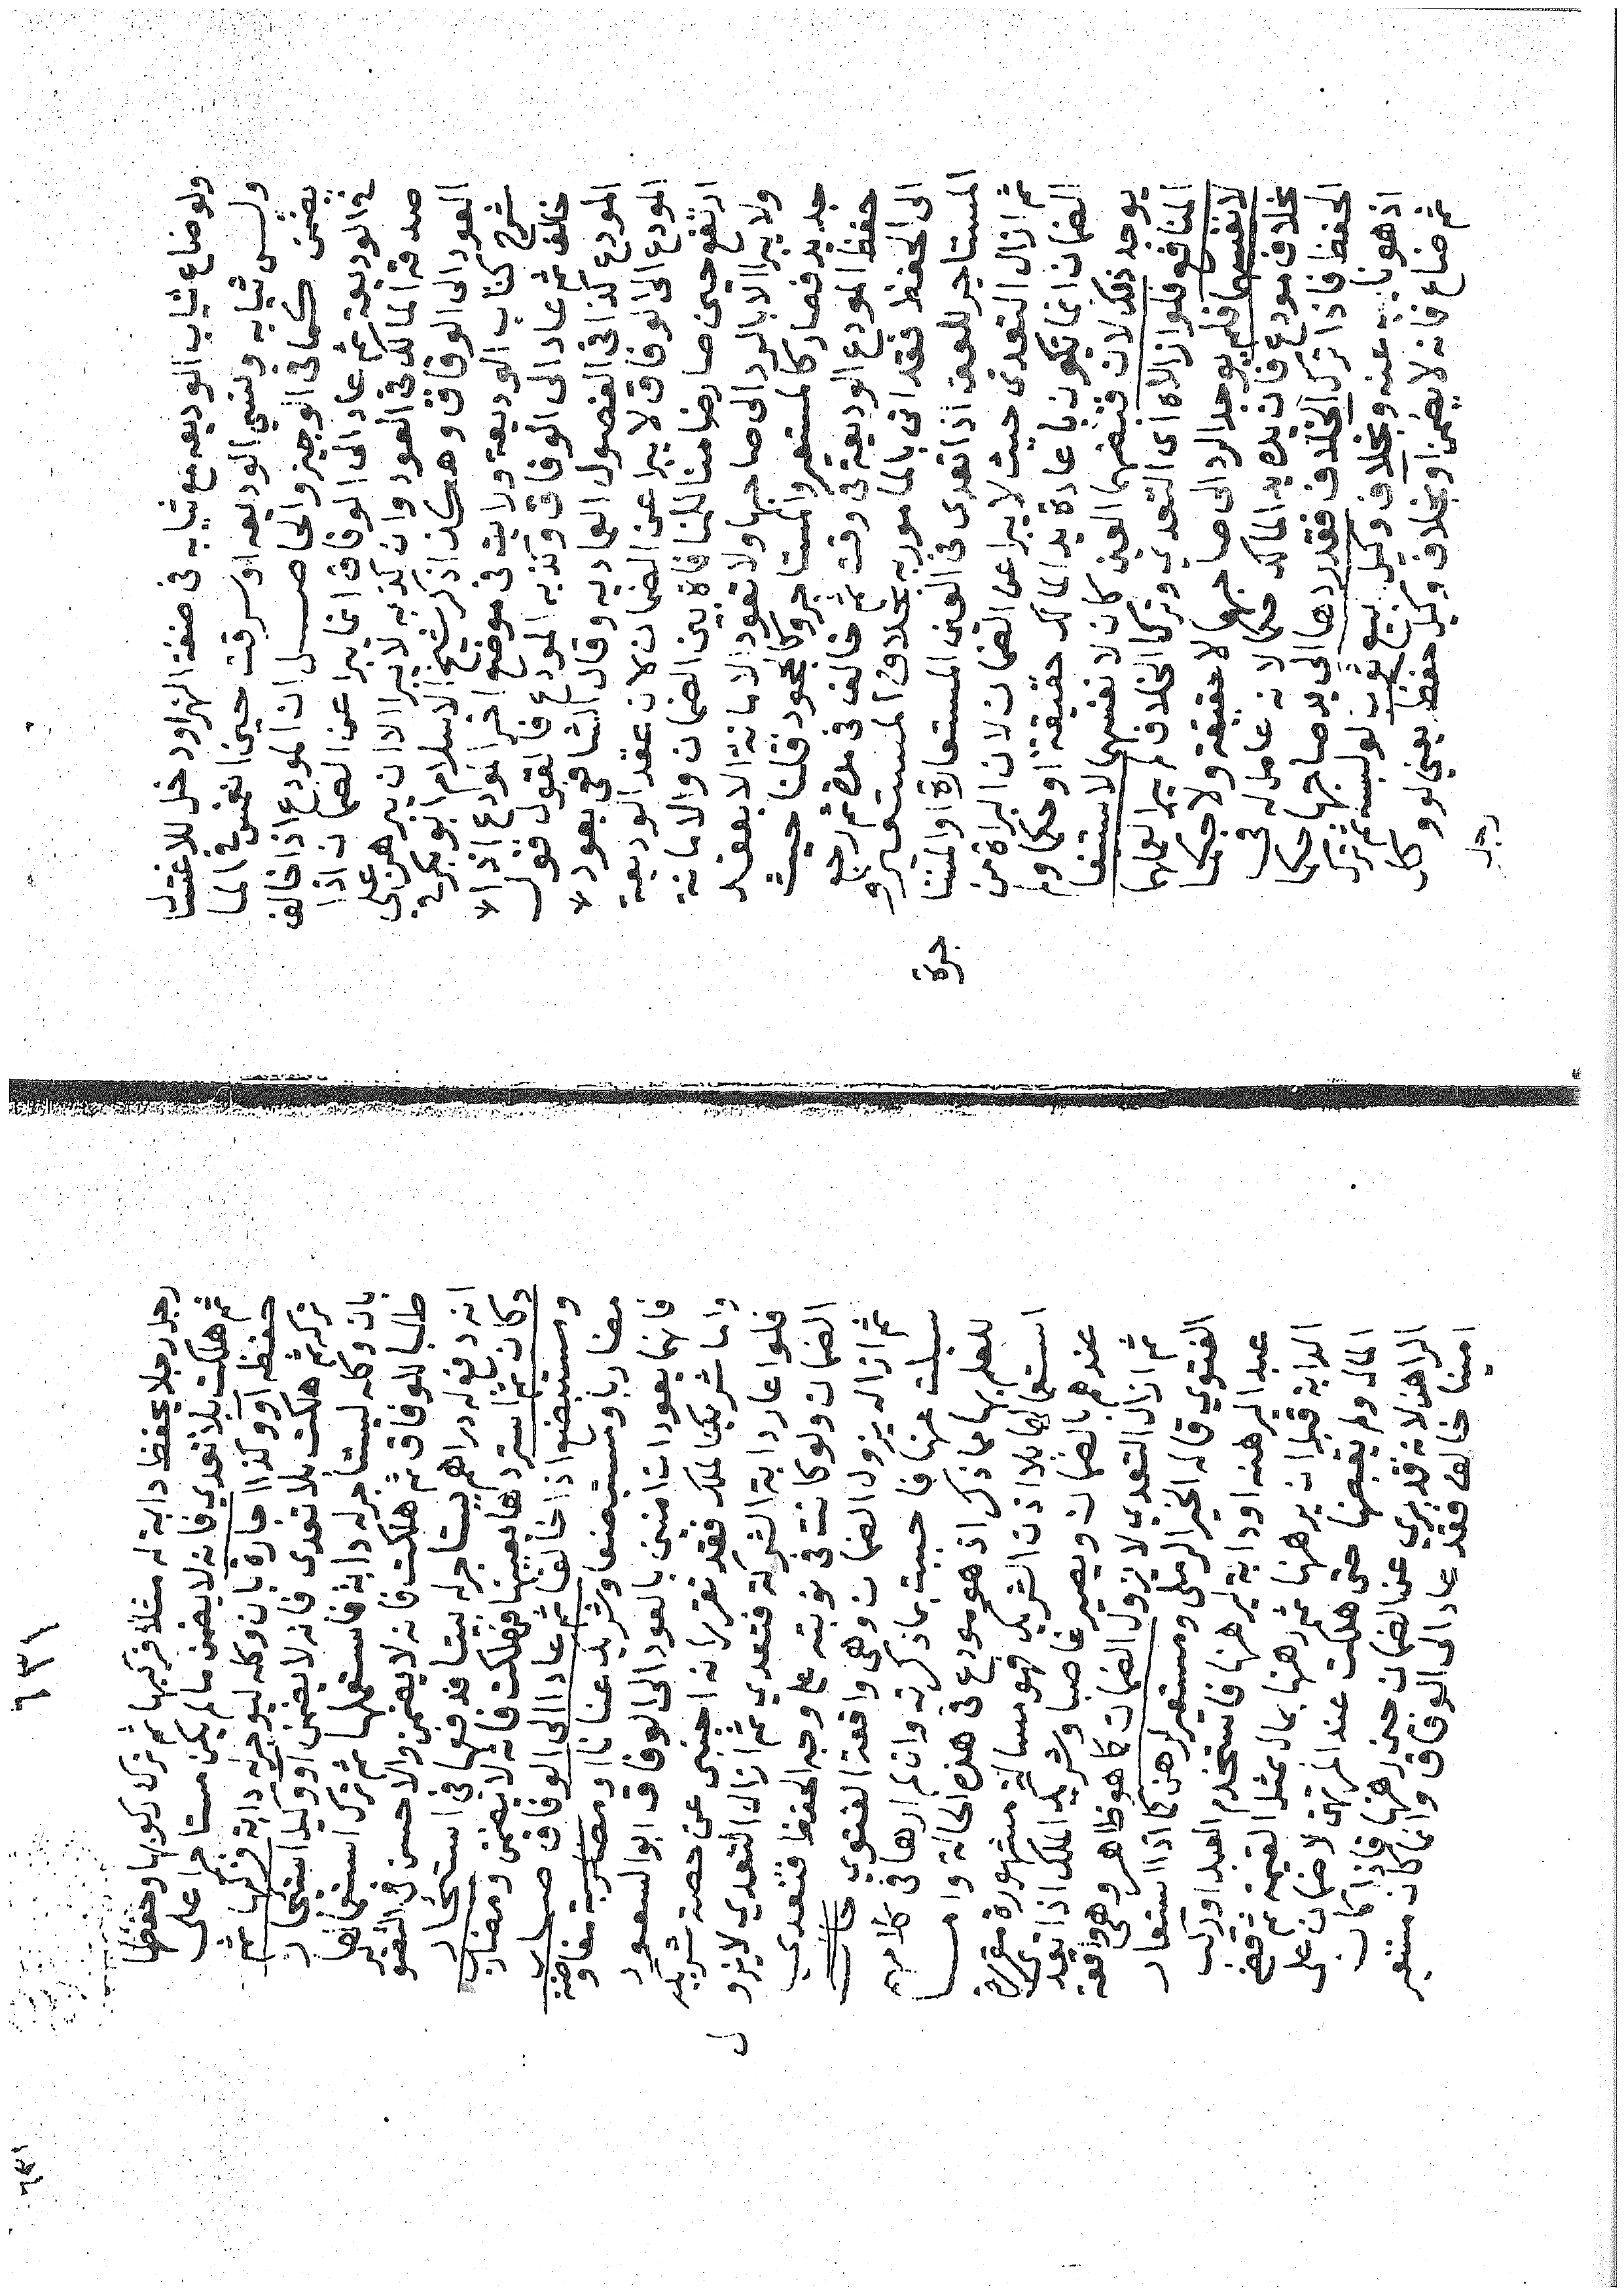 ولو ضاع ثياب الوديعه مع ثيابه في ضفة النهر اودخل للاغتسا
ولبس ثيابه ونسي الوديعه او سرقت حين انغمس في الما
يضمن كما في الوجيز والحاصل ان المودع اذا خالف
في الوديعة ثم عاد الى الوفاق انما يبرا عن الضمان اذا
صدقه المالك في العود وان كذبه لا يبرا الا ان يبرهن على
العود الى الوفاق وهكذا ذكر شيخ الاسلام ابو بكر في
شرح كتاب الوديعة ورايت في موضع اخر المودع اذا
خالف ثم عاد الى الوفاق وكذبه المودع فالقول قول
المودع كذا في الفصول العماديه وقال الشافعي بعود
المودع الى الوفاق لا يبرا عن الضمان لان عقد الوديعة
ارتفع حين صار ضامنا للمنافاة بين الضمان والامانة
ولا يبرا الا بالرد الى صاحبها ولا تعود الامانة الا بعقد
جديد فصار كالمستعير والمستاجر وكالجحود قلنا حيث
حفظ المودع الوديعة في وقت ثم خالف في مدة ثم رجع
الى الحفظ فقد اتى بالمامور به بخلاف المستعير و
المستاجر للعين اذا تعدى في العين المستعارة او المستا
جرة
ثم ازال التعدي حيث لا يبرا عن الضمان لان البراة من
الضمان انما تكون باعادة يد المالك حقيقة او حكما ولم
يوجد ذلك لان قبضهما العين كان لانفسهما لاستيفا
المنافع فلو ازالاه اي التعدي وترك الخلاف لم يبرا لعملهما
لانفسهما فلم يوجد الرد الى صاحبها لا حقيقة ولا حكما
بخلاف مودع فان يده يد المالك حكما لانه عامل له في
الحفظ فاذا ترك الخلاف فقد ردها الى يد صاحبها حكما
اذ هو نايبه عنه وبخلاف وكيل بيع ثوب لو لبسه ثم ترك
ثم ضاع فانه لا يضمن وبخلاف وكيل حفظ يعني لو وكل
رجل
رجل رجلا بحفظ دابة له مثلا فركبها ثم ترك ركوبها وحفظها
ثم هلكت بلا تعدي فانه لا يضمن ما لم يكن مستاجرا على
حفظه او وكذا اجارة بان وكله ليوجر له دابة فركبها ثم
تركه ثم هلكت بلا تعدى فانه لا يضمن او وكيل استيجار
بان وكله ليستاجر له دابة فاستعملها ثم ترك استعمالها
طلبا للوفاق ثم هلكت فانه لا يضمن والاحسن في التصوير
انه دفع له دراهم يستاجر له بيتا فدفعها في استيجار
دكان ثم استردها بعينها فهلكت فانه لا يضمن ومضارب
ومستبضع اذا خالفا ثم عادا الى الوفاق صار
مضاربا ومستبضعا وشريك عنانا او مفاوضة
فانهما يعودان امنين بالعود الى الوفاق ابو السعود
واما شريكنا لملك فقد تقرر انه اجنبي عن حصة شريكه
فلو اعار دابة الشركة فتعدي ثم ازال التعدي لا يزو
ل
الضمان ولو كانت في نوبته على وجه الحفظ فتعدي
ثم ازاله يزول الضمان وهي واقعة الفتوي
سيلت عنها فاجبت بما ذكرته وان لم ارها في كلامهم
للعلم بها مما ذكر اذ هو مودع في هذه الحالة واما
استعمالها بلا اذن الشريك فهو مسالة مشهورة مقررة
عندهم بالضمان ويصير غاصبا وشريك الملك اذا تعد
ثم ازال التعدي لا يزول الضمان كما هو ظاهر وهي واقعة
الفتوي قاله الخير الرملي ومستعير لرهن كما اذا استعار
عبد اليرهنه او دابة ليرهنها فاستخدم العبد او ركب
الدابة قبل ان يرهنها ثم رهنها بمال بمثل القيمة ثم قضى
المال ولم يقبضها حتى هلكت عند المرتهن لا ضمان على
الراهن لانه قد بري عن الضمان حين رهنها فاذا كان
امينا خالف فقد عاد الى الوفاق وانما كان مستعير